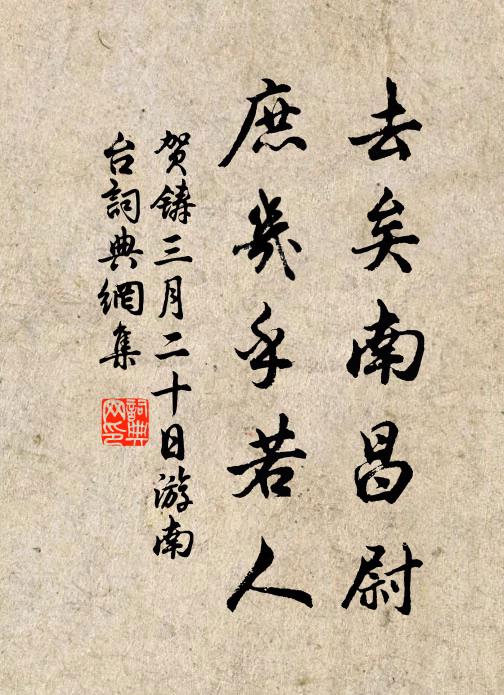 去矣南昌尉
庶几乎若人
贺鑄三月二十日游南
台詞典網集
詞典
网印